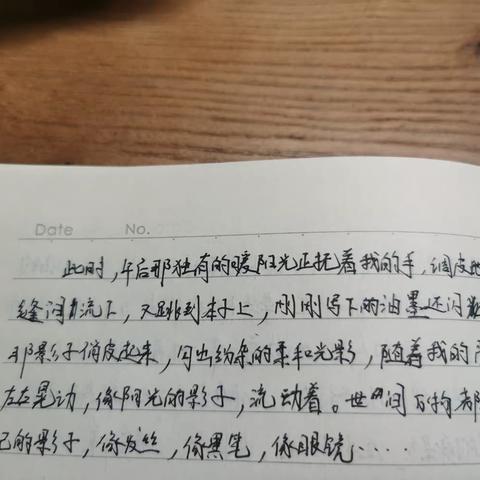 Date No.
此时,午后那独有的暖阳光正抚着我的手,调皮地
缝间流下,又跳到本子上,刚刚写下的油墨还闪
那影子俏皮起来,闪出的柔和光影,随着我的
左左晃动,像阳光的影子,流动着。世间万物都
己的影子,像发丝,像黑笔,像眼镜……